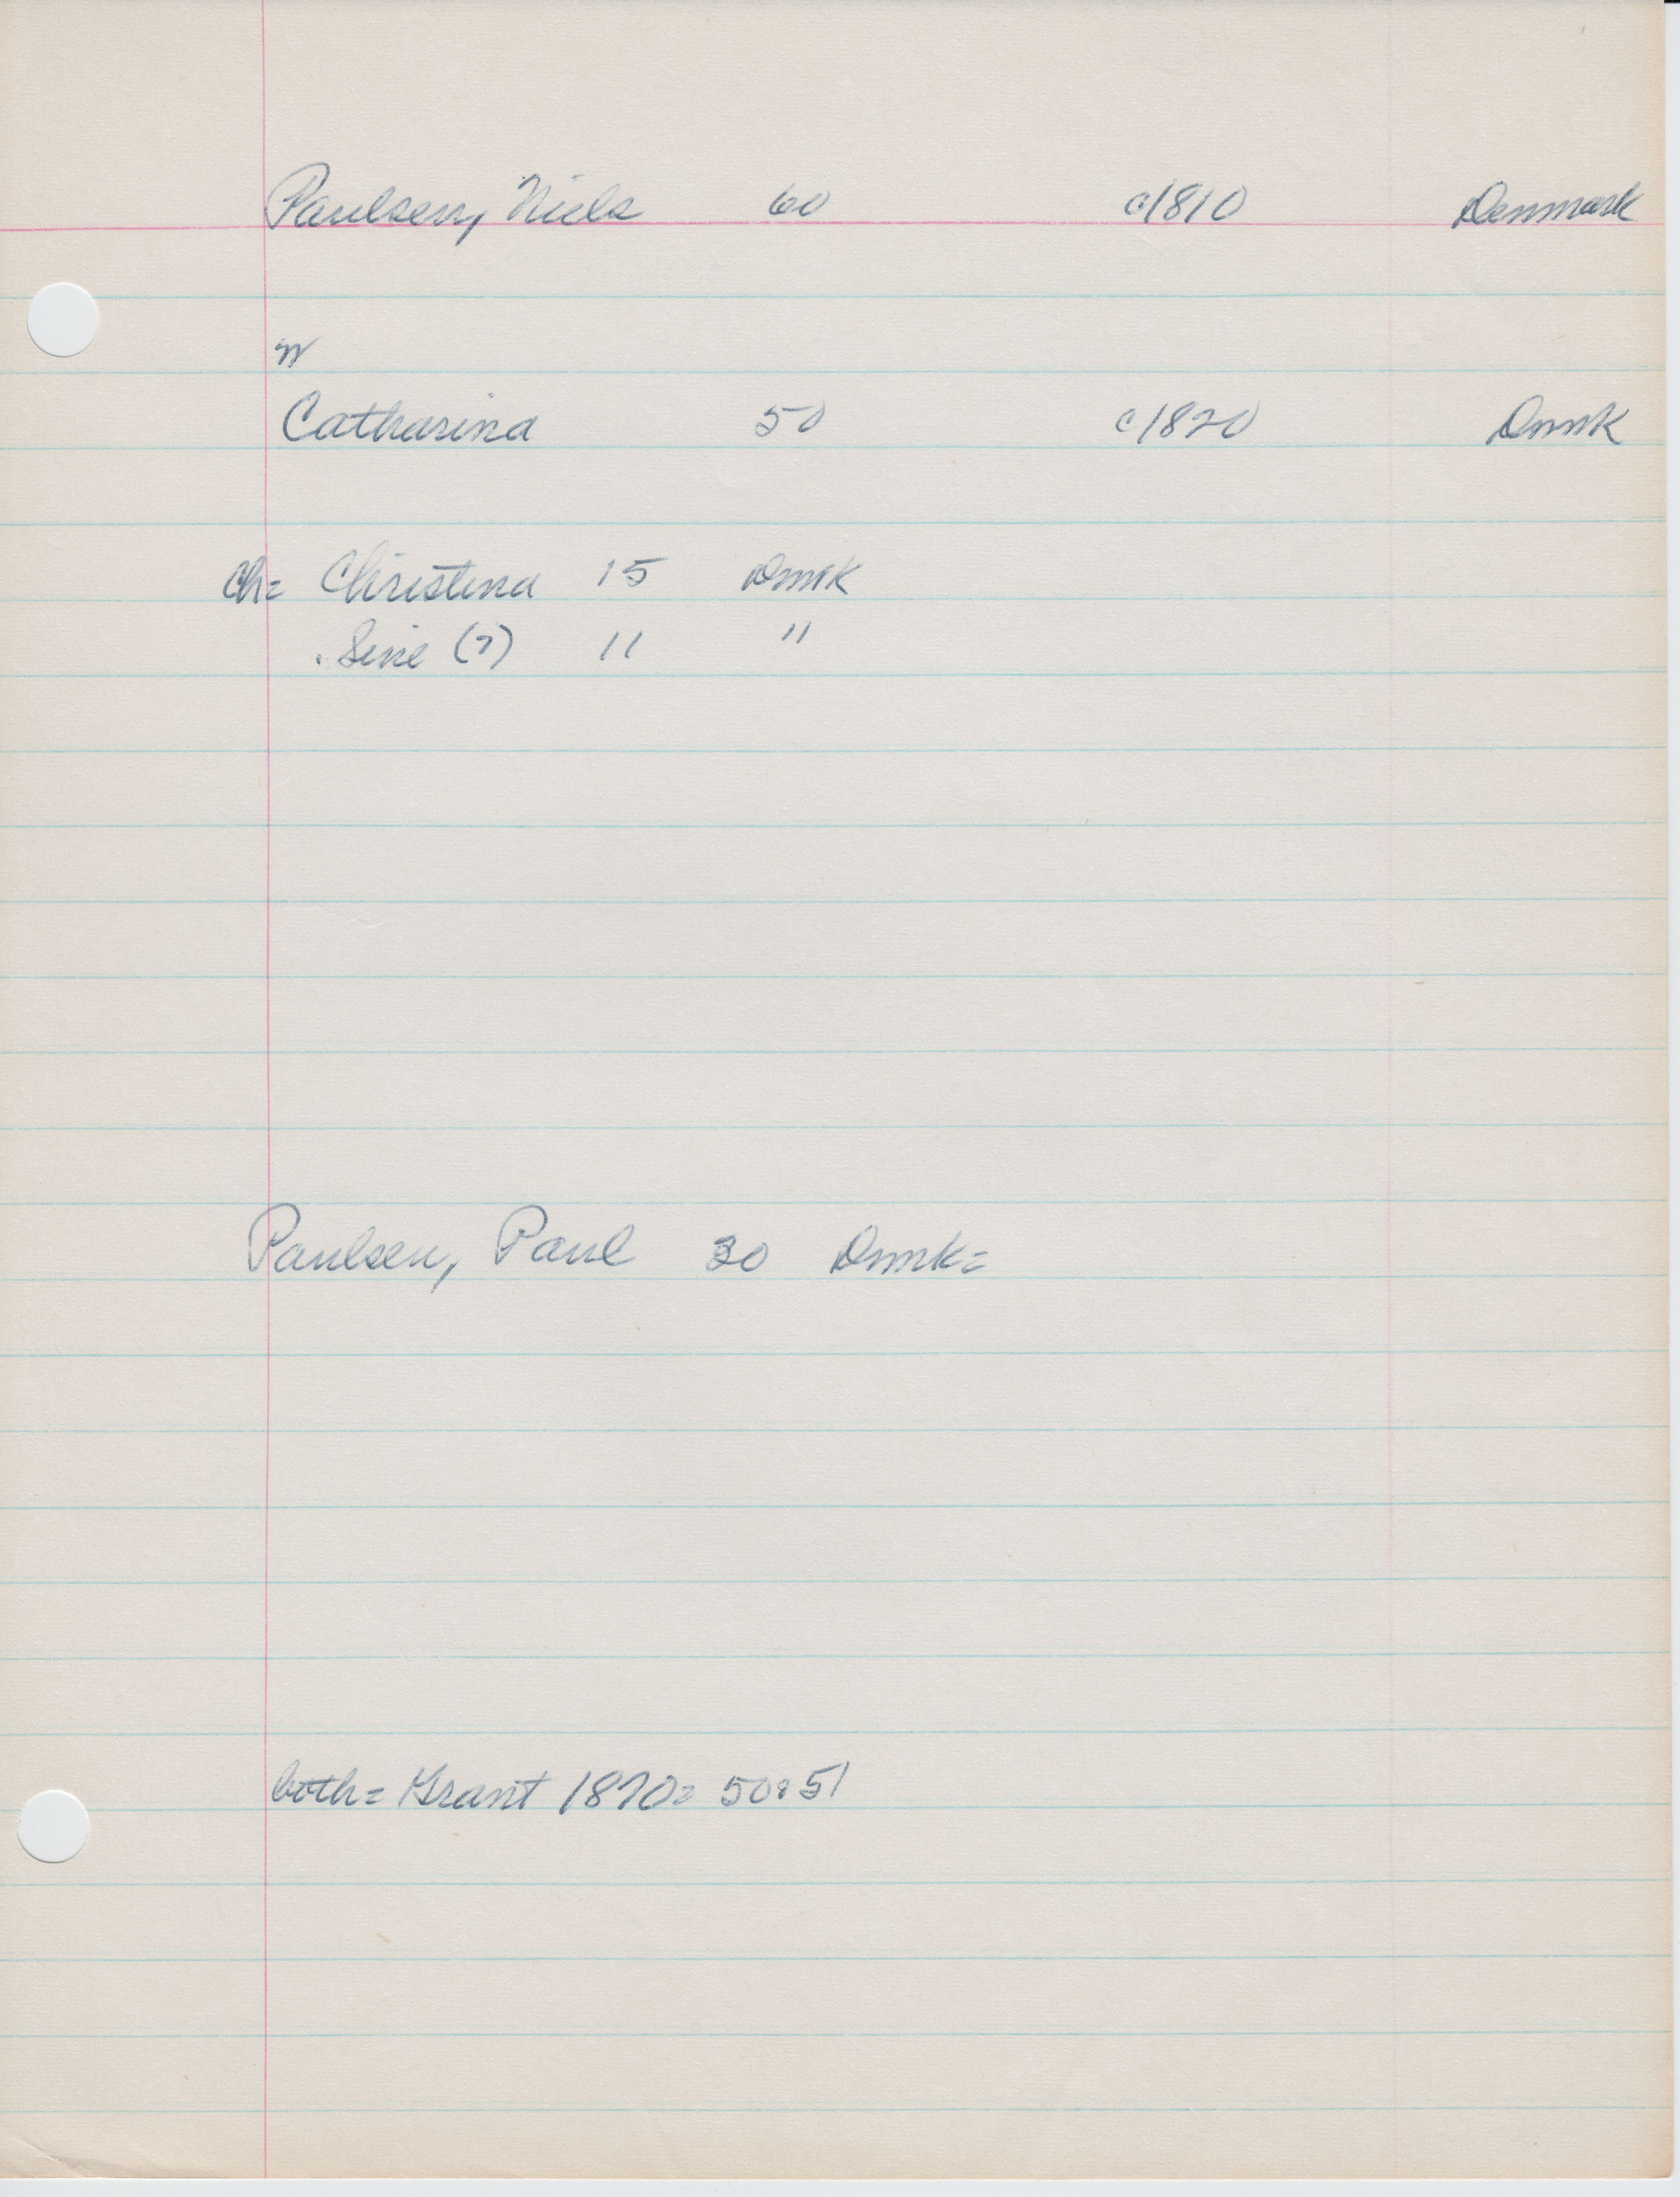 Paulsen, Niels 60 c1810 Denmark
W
Catharina 50 c1820 Dnmk
Ch= Christina 15 Dnmk
Sine (?) 11 "
Paulsen, Paul 30 Dnmk=
both= Grant 1870= 50:51